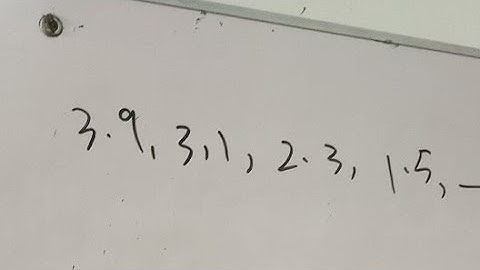 3.9, 3,1, 2.3, 1.5, —